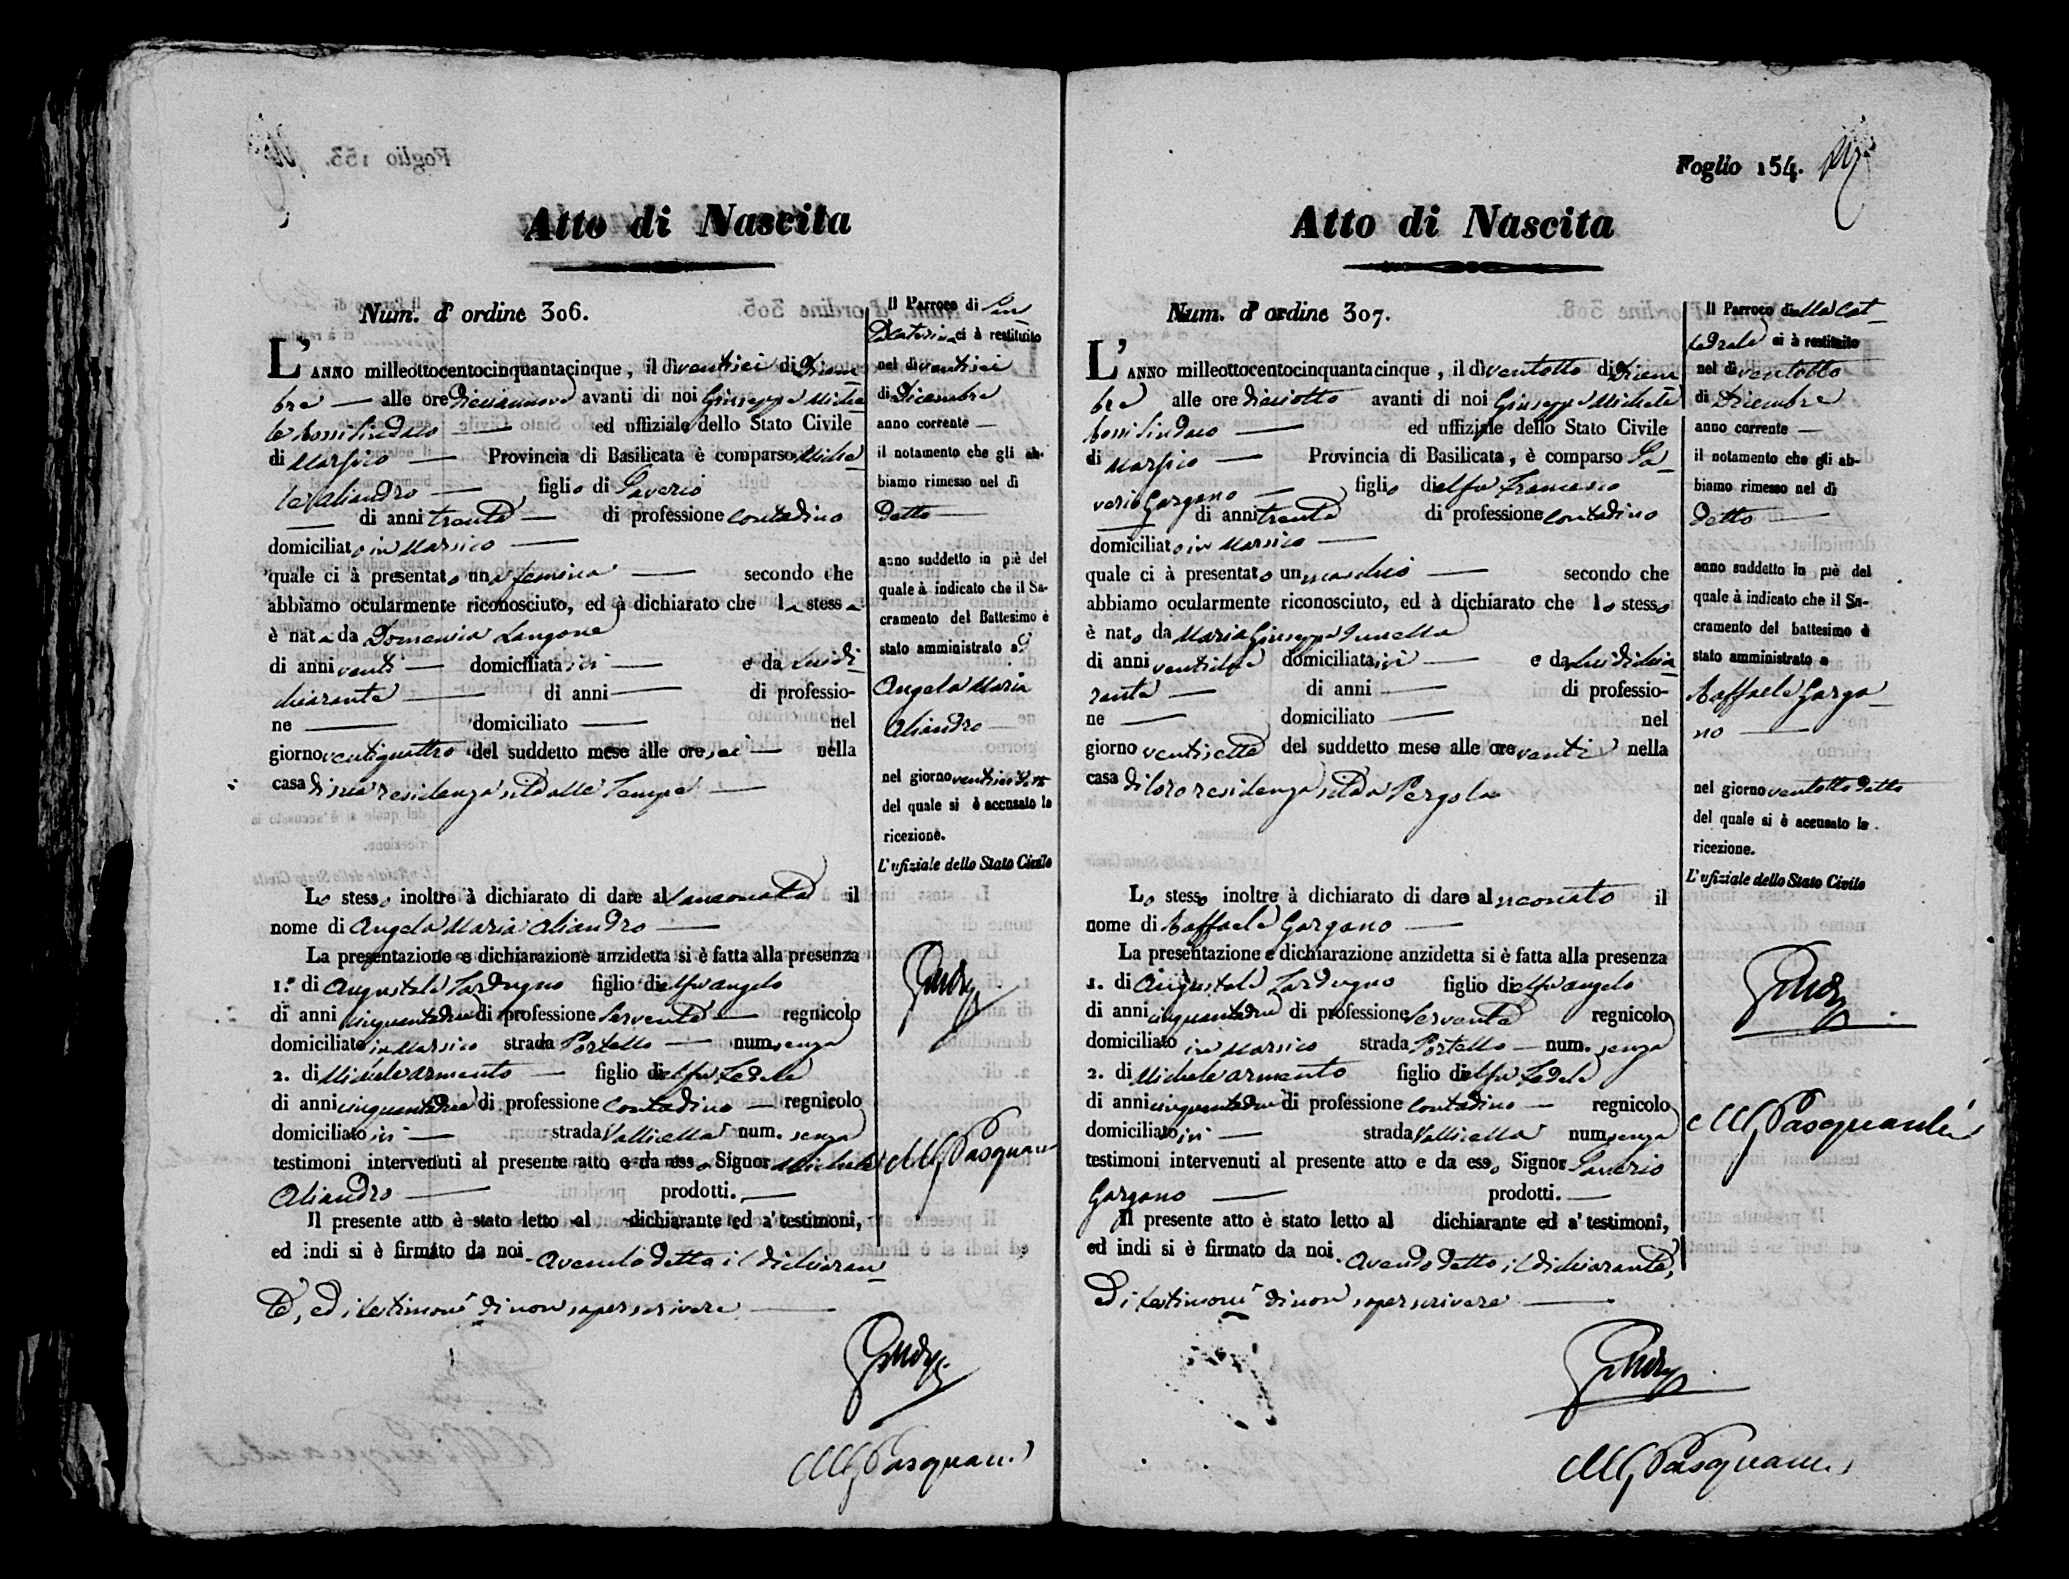 Atto di Nascita
Num. d' ordine 306.
L' ANNO milleottocentocinquantacinque, il dì ventisei di Dicem
bre — alle ore diciannove avanti di noi Giuseppe Miche
le Sindaco — ed uffiziale dello Stato Civile
di Marsico — Provincia di Basilicata è comparso Miche
le Aliandro — figlio di Saverio
— di anni trenta — di professione contadino
domiciliato in Marsico —
quale ci à presentato una femina — secondo che
abbiamo ocularmente riconosciuto, ed à dichiarato che la stessa
è nata da Domenica Langone
di anni venti — domiciliata ivi — e da lui di
chiarante — di anni — di professio-
ne — domiciliato — nel
giorno ventiquattro del suddetto mese alle ore sei — nella
casa di sua residenza sita alle Tempe —
Lo stesso inoltre à dichiarato di dare alla neonata il
nome di Angela Maria Aliandro —
La presentazione e dichiarazione anzidetta si è fatta alla presenza
1.° di Augustale Lardogno figlio del fu Angelo
di anni cinquantadue di professione Servente — regnicolo
domiciliato in Marsico strada Portello — num. senza
2. di Michele Armento — figlio del fu Fedele
di anni cinquantadue di professione contadino — regnicolo
domiciliato ivi — strada Vallicella num. senza
testimoni intervenuti al presente atto e da esso Signor Michele
Aliandro — prodotti. —
Il presente atto è stato letto al dichiarante ed a' testimoni,
ed indi si è firmato da noi. Avendo detto il dichiaran
te, ed i testimoni di non saper scrivere —
Il Parroco di San
ta Caterina ci à restituito
nel dì ventisei
di Dicembre
anno corrente —
il notamento che gli ab-
biamo rimesso nel dì
detto —
anno suddetto in piè del
quale à indicato che il Sa-
cramento del Battesimo è
stato amministrato ad
Angela Maria
Aliandro —
nel giorno ventisei detto
del quale si è accusato la
ricezione.
L' ufiziale dello Stato Civile
Foglio 154.
Atto di Nascita
Num. d' ordine 307.
L' ANNO milleottocentocinquantacinque, il dì ventotto di Dicem
bre alle ore diciotto avanti di noi Giuseppe Michele
Sindaco — ed uffiziale dello Stato Civile
di Marsico — Provincia di Basilicata, è comparso Sa
verio Gargano — figlio del fu Francesco
— di anni trenta di professione contadino
domiciliato in Marsico —
quale ci à presentato un maschio — secondo che
abbiamo ocularmente riconosciuto, ed à dichiarato che lo stesso
è nato da Maria Giuseppa
di anni ventidue domiciliata ivi — e da lui dichia
rante — di anni — di professio-
ne — domiciliato — nel
giorno ventisette del suddetto mese alle ore venti nella
casa di loro residenza sita a Pergola
Lo stesso inoltre à dichiarato di dare al neonato il
nome di Raffaele Gargano —
La presentazione e dichiarazione anzidetta si è fatta alla presenza
1. di Augustale Lardogno figlio del fu Angelo
di anni cinquantadue di professione Servente regnicolo
domiciliato in Marsico strada Portello — num. senza
2. di Michele Armento figlio del fu Fedele
di anni cinquantadue di professione contadino — regnicolo
domiciliato ivi — strada Vallicella num senza
testimoni intervenuti al presente atto e da esso Signor Saverio
Gargano — prodotti. —
Il presente atto è stato letto al dichiarante ed a' testimoni,
ed indi si è firmato da noi. Avendo detto il dichiarante,
ed i testimoni di non saper scrivere —
Il Parroco della Cat
tedrale ci à restituito
nel dì ventotto
di Dicembre
anno corrente —
il notamento che gli ab-
biamo rimesso nel dì
detto —
anno suddetto in piè del
quale à indicato che il Sa-
cramento del battesimo è
stato amministrato a
Raffaele Garga
no —
nel giorno ventotto detto
del quale si è accusato la
ricezione.
L' ufiziale dello Stato Civile